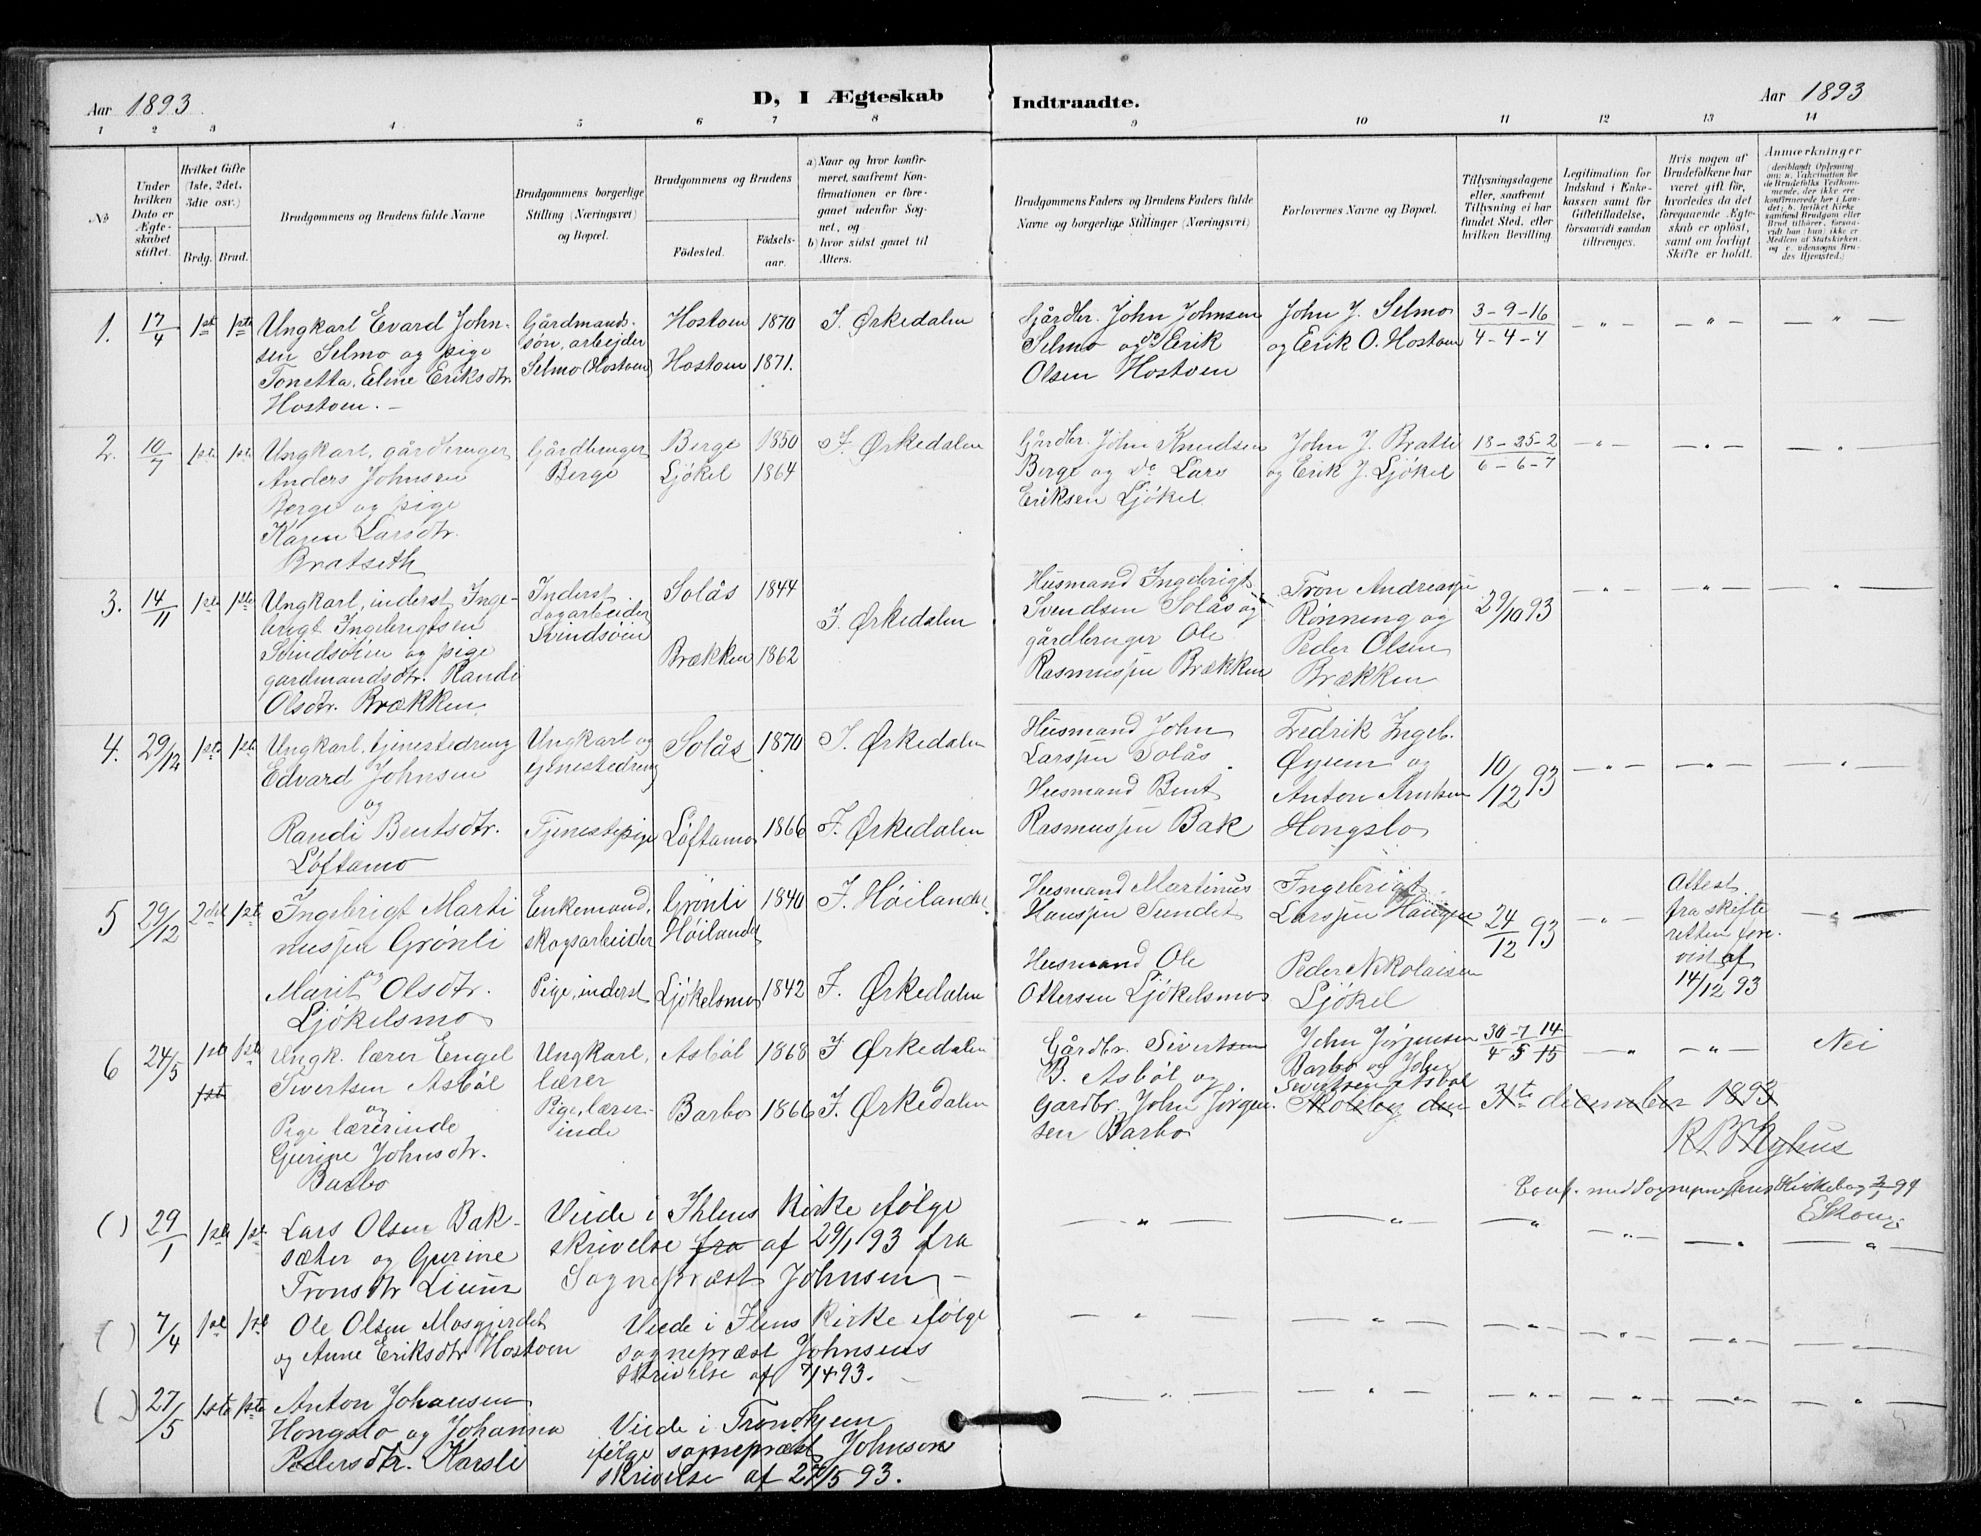 Aar 1893
D, I Ægteskab Indtraadte.
Aar 1893
1 2 3 4 5 6 7 8 9 10 11 12 13 14
No
Under hvilken Dato er Ægteskabet stiftet.
Hvilket Gifte (1ste, 2det, 3die osv.)
Brdg. Brud.
Brudgommens og Brudens fulde Navne
Brudgommens borgerlige Stilling (Næringsvei) og Bopæl.
Brudgommens og Brudens
Fødested.
Fødselsaar.
a) Naar og hvor konfirmeret, saafremt Konfirmationen er foregaaet udenfor Sognet, og
b) hvor sidst gaaet til Alters.
Brudgommens Faders og Brudens Faders fulde Navne og borgerlige Stillinger (Næringsvei)
Forlovernes Navne og Bopæl.
Tillysningsdagene eller, saafremt Tillysning ei har fundet Sted, efter hvilken Bevilling
Legitimation for Indskud i Enkekassen samt for Giftetilladelse, forsaavidt saadan tiltrænges.
Hvis nogen af Brudefolkene har været gift før, hvorledes da det foregaaende Ægteskab er opløst, samt om lovligt Skifte er holdt.
Anmærkninger
1. 17/4 1ste 1ste
Ungkarl Evard John-
sen Selmo og pige
Tonetta Eline Eriksdtr.
Hostoen. –
Gårdmands-
søn, arbejder
Selmo (Hostoen)
Hostoen 1870
Hostoen 1871.
I. Ørkedalen
Gårdbr. John Johnsen
Selmo og do Erik
Olsen Hostoen
John J. Selmo
og Erik O. Hostoen
3 – 9 – 16
4 – 4 – 4
– " – – " – – " –
2. 10/7 1ste 1ste
Ungkarl, gårdbruger
Anders Johnsen
Berge og pige
Karen Larsdtr.
Bratseth
Gårdbruger
Berge
Berge 1850
Ljøkel 1864
I. Ørkedalen
Gårdbr. John Knudsen
Berge og do Lars
Eriksen Ljøkel.
John J. Bratli
og Erik J. Ljøkel
18 – 25 – 2
6 – 6 – 7
– " – – " – – " –
3. 14/11 1ste 1ste
Ungkarl, inderst Inge-
brigt Ingebrigtsen
Svindsøien og pige
gardmandsdtr. Randi
Olsdtr. Brækken.
Inderst
dagarbeider
Svindsøien
Solås 1844
Brækken 1862
I. Ørkedalen
Husmand Ingebrigt
Svendsen Solås og
gårdbruger Ole
Rasmussen Brækken
Tron Andreassen
Rønning og
Peder Olsen
Brækken
29/10 93
– " – – " – – " –
4. 29/12 1ste 1ste
Ungkarl, tjenestedreng
Edvard Johnsen
og
Randi Bentsdtr.
Løftamo
Ungkarl og
tjenestedreng
Tjenestepige
Solås 1870
Løftamo 1866
I. Ørkedalen
I. Ørkedalen
Husmand John
Larssen Solås.
Husmand Bent
Rasmussen Bak
Fredrik Ingeb.
Øyum og
Anton Arntsen
Hongslo
10/12 93
– " – – " – – " –
5 29/12 2det 1ste
Ingebrigt Marti
nussen Grønli
og
Marit Olsdtr.
Ljøkelsmo
Enkemand,
skogsarbeider
Pige, inderst
Grønli
Høilandet 1840
Ljøkelsmo 1842
I. Høilandet
I. Ørkedalen
Husmand Martinus
Hanssen Sundet
Husmand Ole
Ottersen Ljøkelsmo
Ingebrigt
Larssen Haugen
Peder Nikolaisen
Ljøkel
24/12 93
– " –
Attest
fra skifte
retten fore-
vist af
14/12 93
– " –
6 24/5 1ste 1ste
1ste
Ungk. lærer Engel
Sivertsen Asbøl
og
Pige lærerinde
Gurine Johnsdtr.
Barbo
Ungkarl,
lærer
Pige, lærer-
inde
Asbøl 1868
Barbo 1866
I Ørkedalen
I. Ørkedalen
Gårdbr. Sivertsen
B. Asbøl og
Gardbr. John Jørgen-
sen Barbo
John Jørgensen
Barbo og John
Sivertsen Asbøl
30 – 7 – 14
4 – 5 – 15
– " – – " – Nei
den 31te december 1893
Conf. med Sogneprestens Kirkebog
( ) 29/1 1ste 1ste
Lars Olsen Bak-
sæter og Gurine
Tronsdtr Lium
Viede i Ihlens Kirke ifølge
skrivelse fra af 29/1 93 fra
Sogneprest Johnsen –
– " – – " – – " – – " – – " – – " –
( ) 7/4 1ste 1ste
Ole Olsen Mosgjerdet
og Anne Eriksdtr Hostoen
Viede i Ilens Kirke ifølge
sogneprest Johnsens
skrivelse af 7/4 93. –
– " – – " – – " – – " – – " – – " –
( ) 27/5 1ste 1ste
Anton Johansen
Hongslo og Johanna
Pedersdtr. Karsli
Viede i Trondhjem
ifølge sogneprest Johnsens
skrivelse af 27/5 93.
– " – – " – – " – – " – – " – – " –